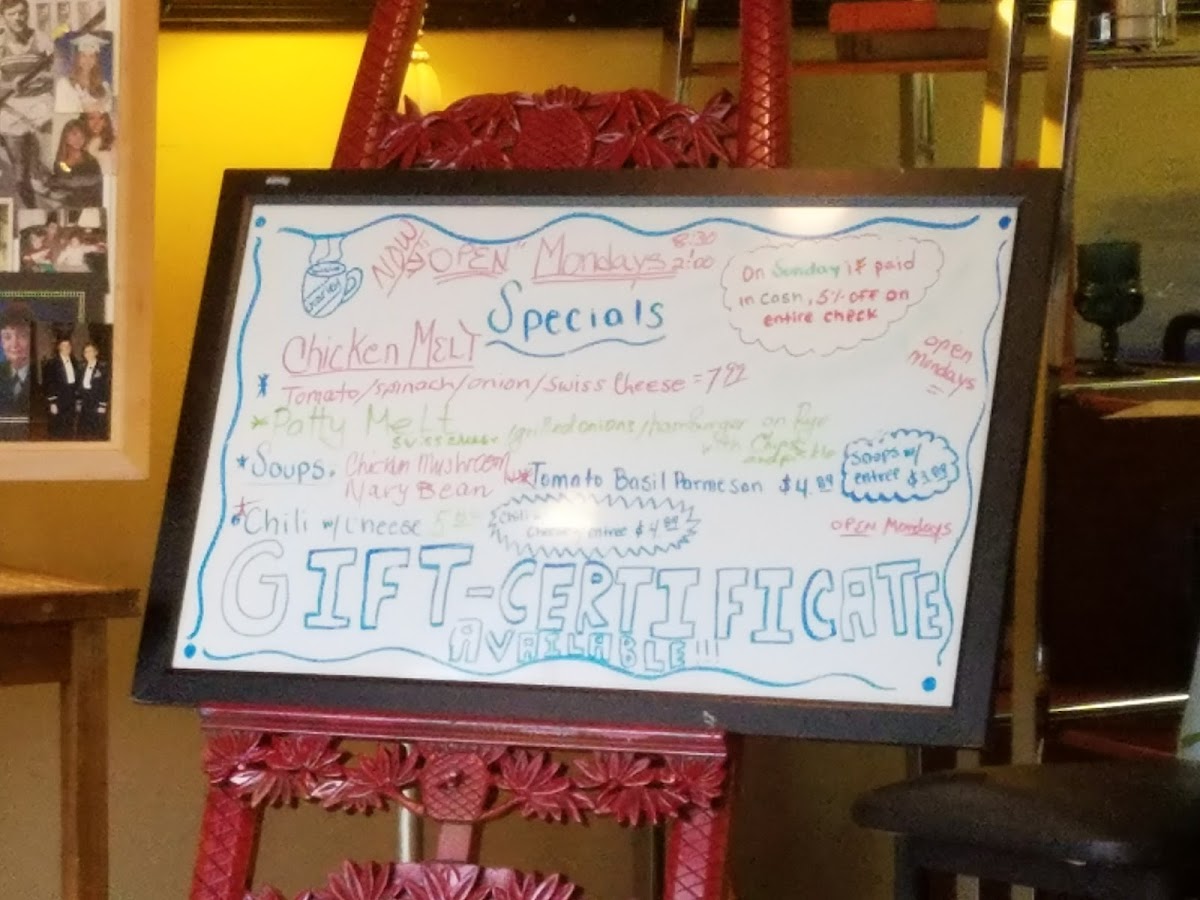 NOW "OPEN" Mondays 8:30 2:00
On Sunday if paid
in cash, 5% OFF on
entire check
Specials
Chicken MELT
open
mondays
* Tomato/spinach/onion/swiss cheese = 7.99
* Patty Melt
swiss cheese /grilled onions/hamburger on Rye
with Chips
and pickle
* Soups. Chicken Mushroom
Navy Bean
Tomato Basil Parmeson $4.
Soups w/
entree $3.
* Chili w/ cheese 5
Chili
cheese entree $4
OPEN Mondays
GIFT-CERTIFICATE
AVAILABLE!!!